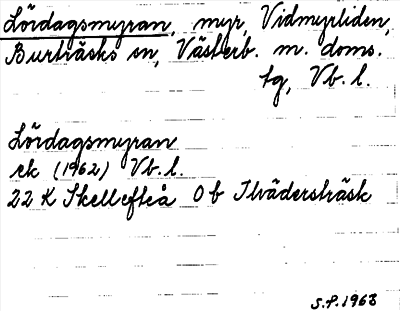 Lördagsmyran, myr, Vidmyrliden,
Burträsks sn, Västerb. m. doms.
tg, Vb. l.
Lördagsmyran
ek (1962) Vb. l.
22 K Skellefteå 0 b Ilvädersträsk
S.P. 1968